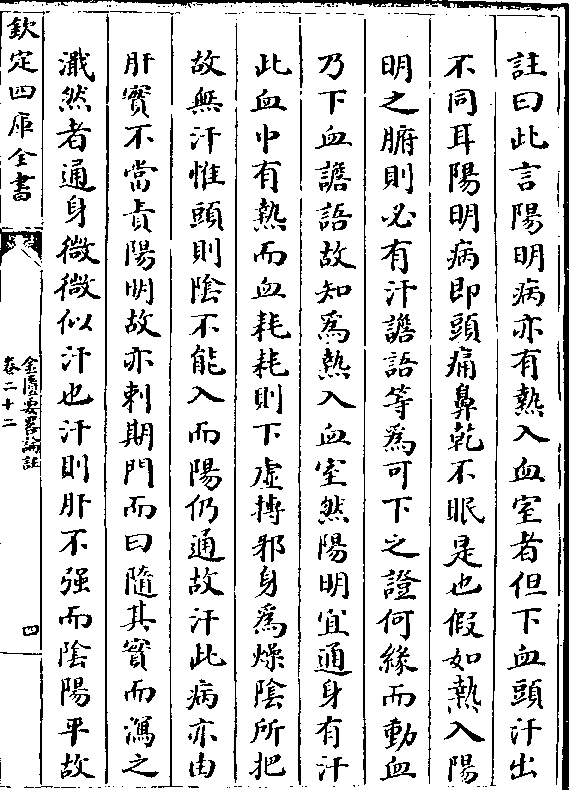 註曰此言陽明病亦有熱入血室者但下血頭汗出
不同耳陽明病即頭痛鼻乾不眠是也假如熱入陽
明之腑則必有汗譫語等為可下之證何緣而動血
乃下血譫語故知為熱入血室然陽明宜通身有汗
此血中有熱而血耗耗則下虛摶邪身為燥陰所把
故無汗惟頭則陰不能入而陽仍通故汗此病亦由
肝實不當責陽明故亦刺期門而曰隨其實而瀉之
濈然者通身微微似汗也汗則肝不强而陰陽平故
欽定四庫全書
金匱要畧論註
卷二十二
四